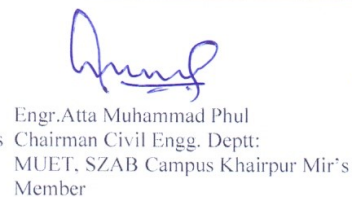 Engr.Atta Muhammad Phul
s Chairman Civil Engg. Deptt:
MUET, SZAB Campus Khairpur Mir's
Member